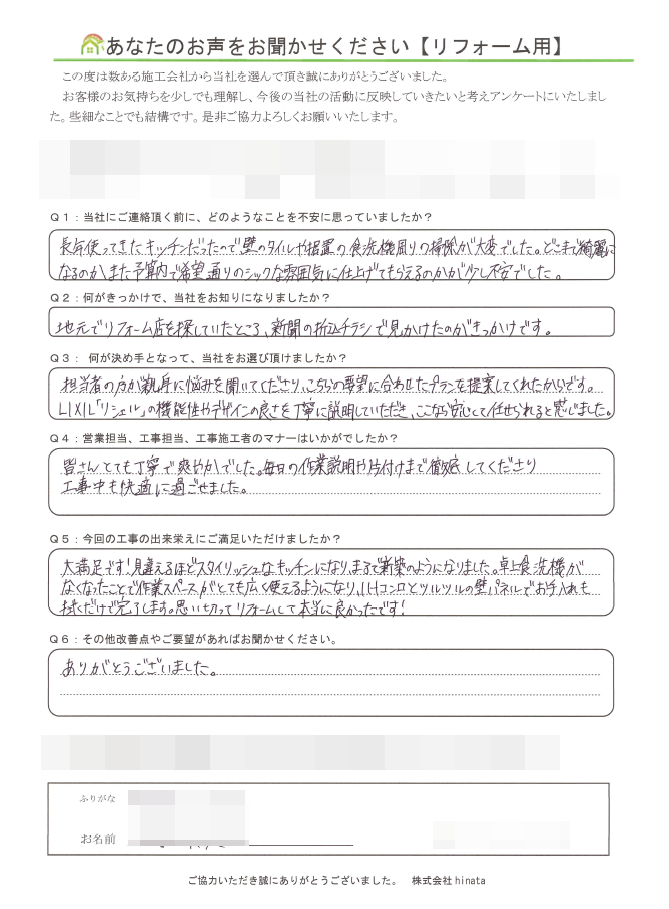 あなたのお声をお聞かせください【リフォーム用】
この度は数ある施工会社から当社を選んで頂き誠にありがとうございました。
お客様のお気持ちを少しでも理解し、今後の当社の活動に反映していきたいと考えアンケートにいたしまし
た。些細なことでも結構です。是非ご協力よろしくお願いいたします。
Q1：当社にご連絡頂く前に、どのようなことを不安に思っていましたか？
長年使ってきたキッチンだったので壁のタイルや据置の食洗機周りの掃除が大変でした。どこまで綺麗に
なるのか、また予算内で希望通りのシックな雰囲気に仕上げてもらえるのかが少し不安でした。
Q2：何がきっかけで、当社をお知りになりましたか？
地元でリフォーム店を探していたところ、新聞の折込チラシで見かけたのがきっかけです。
Q3： 何が決め手となって、当社をお選び頂けましたか？
担当者の方が親身に悩みを聞いてくださり、こちらの要望に合わせたプランを提案してくれたからです。
LIXIL「リシェル」の機能性やデザインの良さを丁寧に説明していただき、ここなら安心して任せられると感じました。
Q4：営業担当、工事担当、工事施工者のマナーはいかがでしたか？
皆さんとても丁寧で爽やかでした。毎日の作業説明や片付けまで徹底してくださり
工事中も快適に過ごせました。
Q5：今回の工事の出来栄えにご満足いただけましたか？
大満足です！見違えるほどスタイリッシュなキッチンになり、まるで新築のようになりました。卓上食洗機が
なくなったことで作業スペースがとても広く使えるようになり、IHコンロとツルツルの壁パネルでお手入れも
拭くだけで完了します。思い切ってリフォームして本当に良かったです！
Q6：その他改善点やご要望があればお聞かせください。
ありがとうございました。
ふりがな
お名前
ご協力いただき誠にありがとうございました。 株式会社hinata